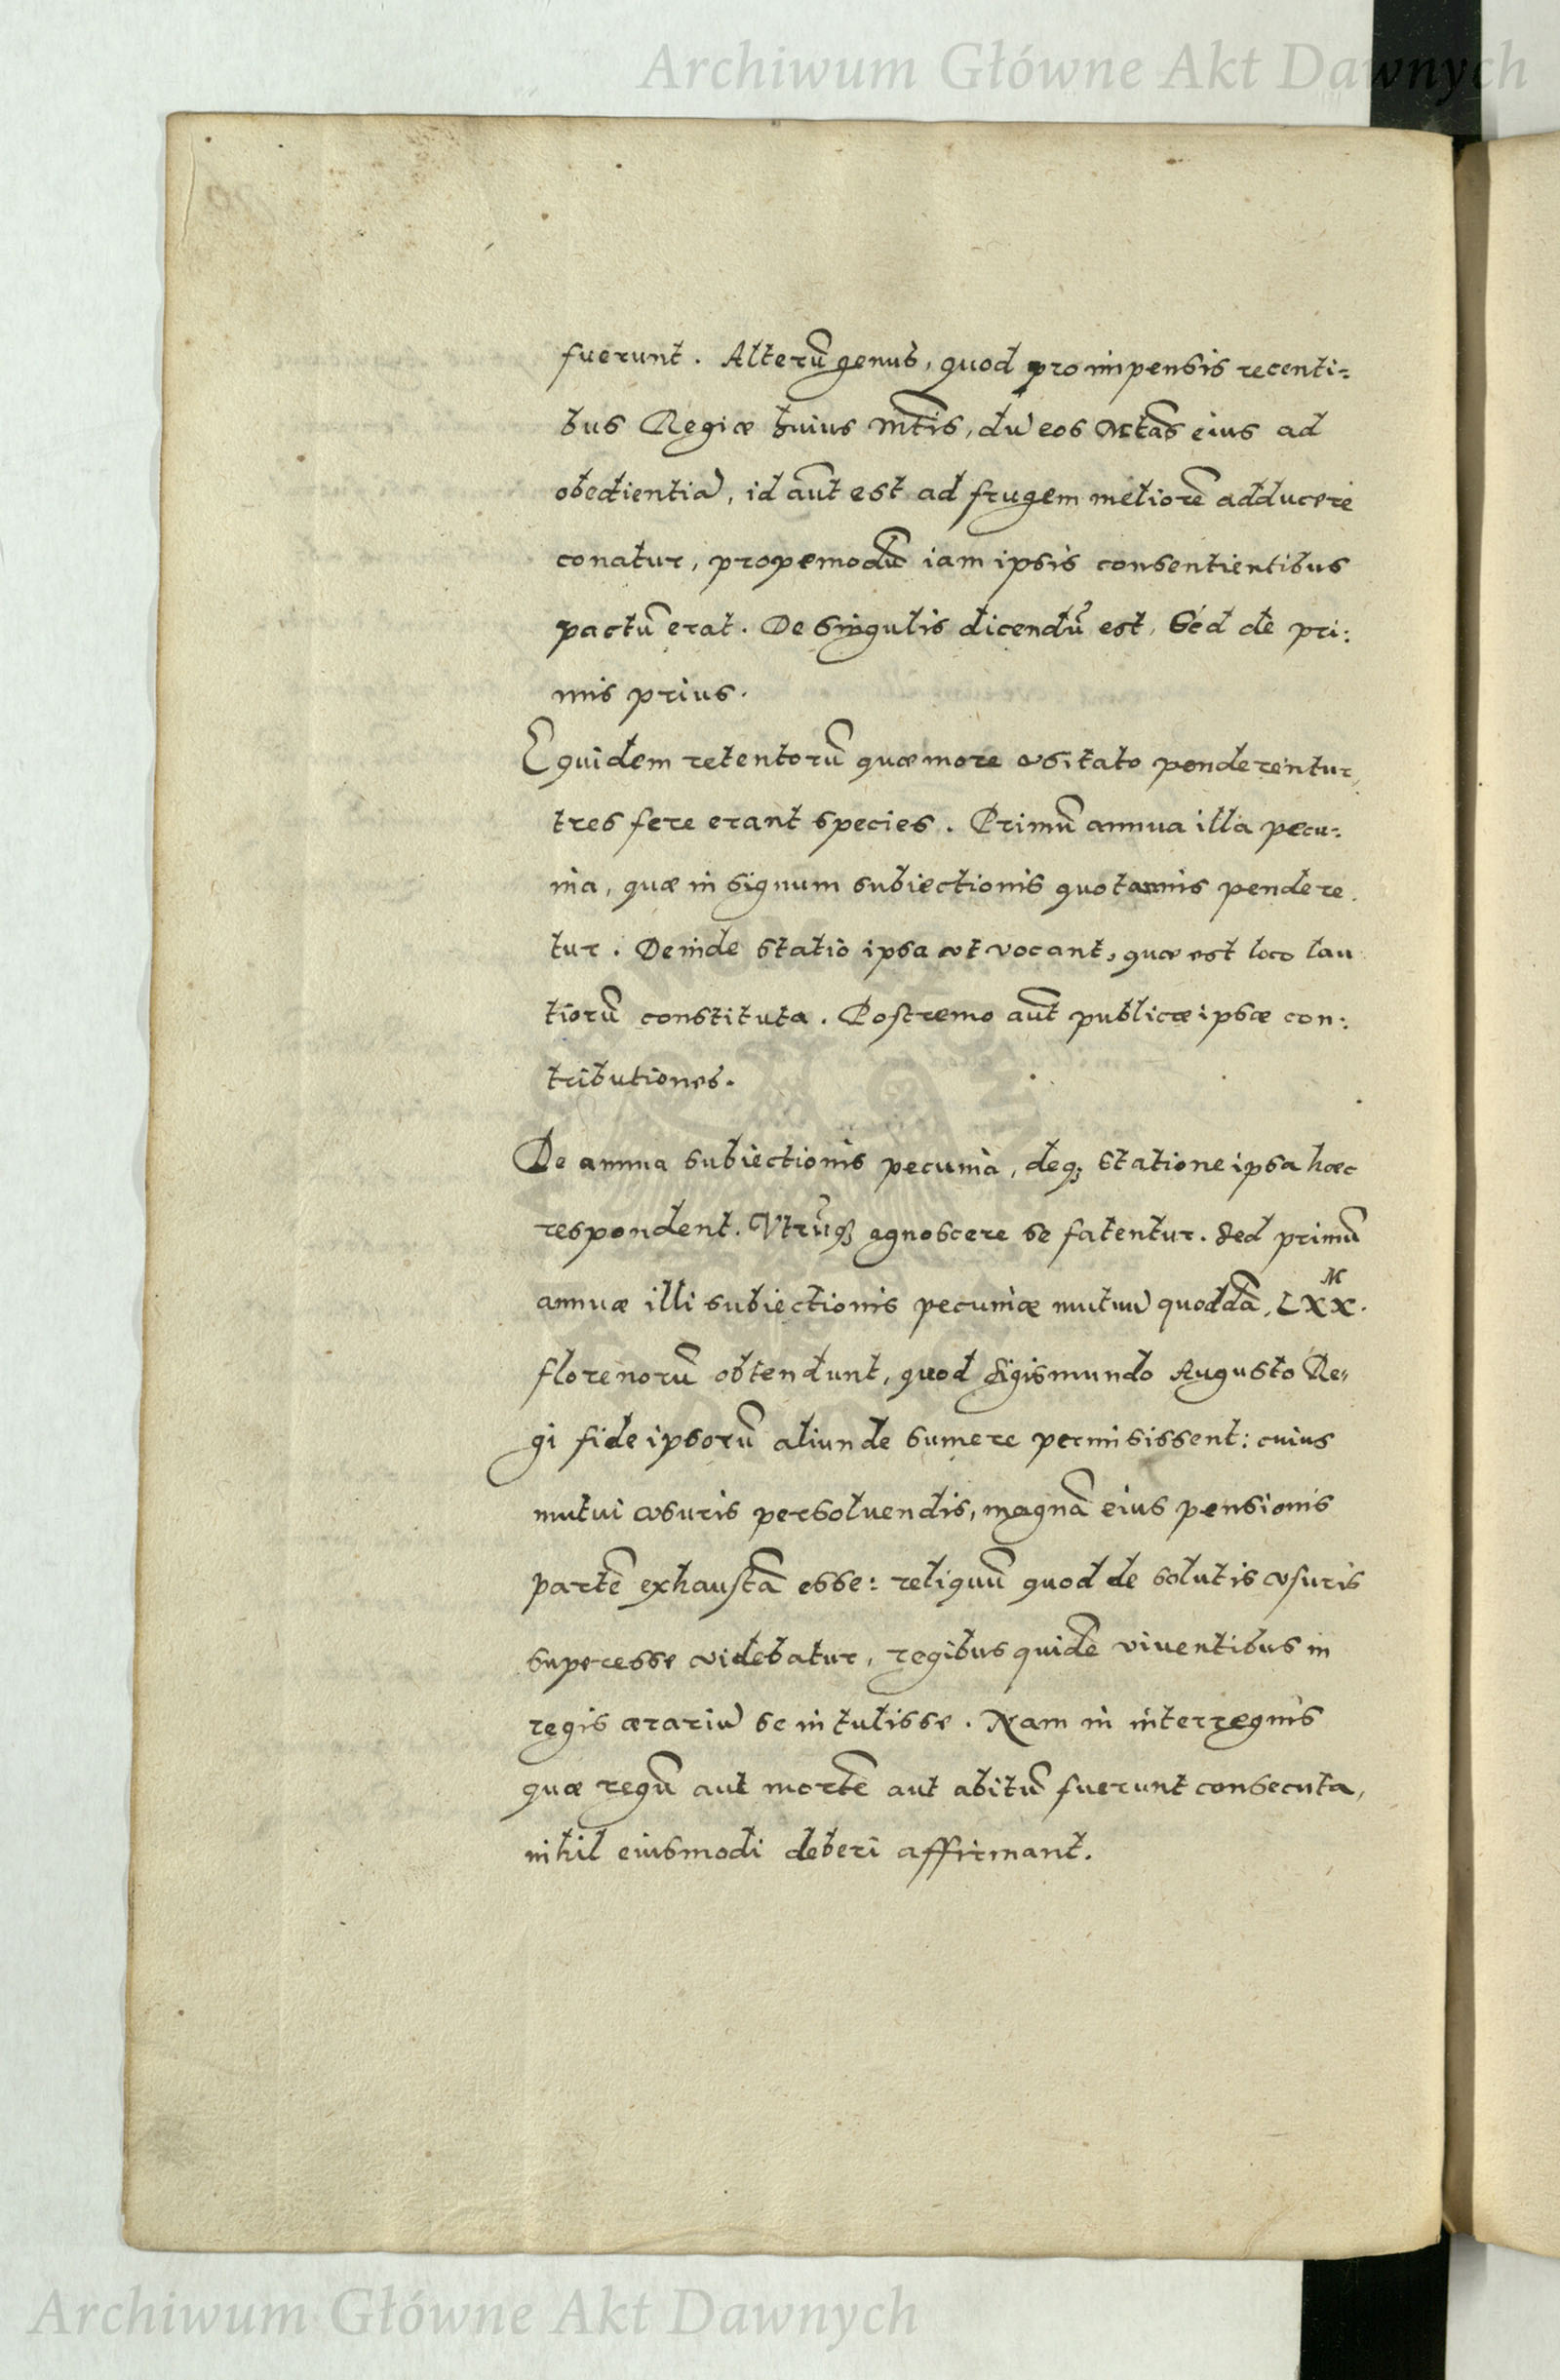 Archiwum Główne Akt Dawnych
fuerunt. Alterũ genus, quod pro impensis recenti=
bus Regiæ huius Mt̃is, dũ eos Mtãs eius ad
obedientiã, id aũt est ad frugem meliorẽ adducere
conatur, propemodũ iam ipsis consentientibus
pactũ erat. De singulis dicendũ est, Sed de pri:
mis prius.
Equidem retentorũ quæ more vsitato penderentur,
tres fere erant species. Primũ annua illa pecu:
nia, quæ in signum subiectionis quotannis pendere
tur. Deinde statio ipsa vt vocant, quæ est loco lau
tiorũ constituta. Postremo aũt publicæ ipsæ con:
tributiones.
De annua subiectionis pecunia, deq; statione ipsa hæc
respondent. Vtrũq; agnoscere se fatentur. Sed primũ
annuæ illi subiectionis pecuniæ mutuũ quoddã, LXX M.
florenorũ obtendunt, quod Sigismundo Augusto Re=
gi fide ipsorũ aliunde sumere permisissent: cuius
mutui vsuris persoluendis, magnã eius pensionis
partẽ exhaustã esse: reliquũ quod de solutis vsuris
superesse videbatur, regibus quidẽ viuentibus in
regis ærariũ se intulisse. Nam in interregnis
quæ regũ aut mortẽ aut abitũ fuerunt consecuta,
nihil eiusmodi deberi affirmant.
Archiwum Główne Akt Dawnych